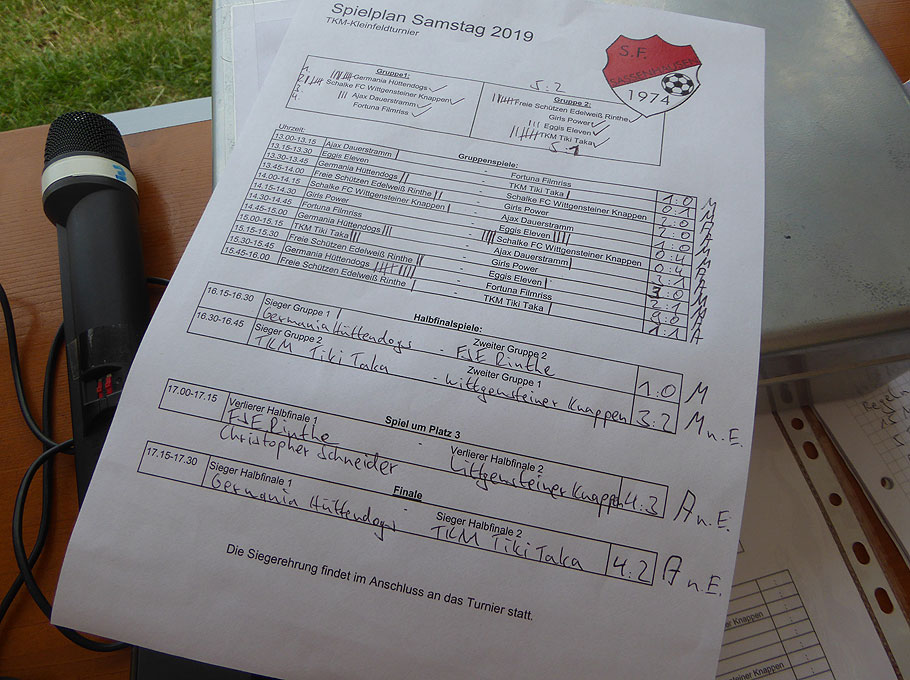 Spielplan Samstag 2019
TKM-Kleinfeldturnier
S.F.
SASSENHAUSEN
1974
Gruppe1:
1. Germania Hüttendogs
2. Schalke FC Wittgensteiner Knappen
3. Ajax Dauerstramm
4. Fortuna Filmriss
5:2
Gruppe 2:
Freie Schützen Edelweiß Rinthe
Girls Power
Eggis Eleven
TKM Tiki Taka
5:1
Uhrzeit:
Gruppenspiele:
13.00-13.15 Ajax Dauerstramm - Fortuna Filmriss 1:0 M
13.15-13.30 Eggis Eleven - TKM Tiki Taka 0:1 M
13.30-13.45 Germania Hüttendogs - Schalke FC Wittgensteiner Knappen 2:0 M
13.45-14.00 Freie Schützen Edelweiß Rinthe - Girls Power 2:0 A
14.00-14.15 Schalke FC Wittgensteiner Knappen - Ajax Dauerstramm 1:0 A
14.15-14.30 Girls Power - Eggis Eleven 0:4 M
14.30-14.45 Fortuna Filmriss - Schalke FC Wittgensteiner Knappen 0:4 A
14.45-15.00 Germania Hüttendogs - Ajax Dauerstramm 3:1 A
15.00-15.15 TKM Tiki Taka - Girls Power 3:0 M
15.15-15.30 Freie Schützen Edelweiß Rinthe - Eggis Eleven 2:1 M
15.30-15.45 Germania Hüttendogs - Fortuna Filmriss 9:0 A
15.45-16.00 Freie Schützen Edelweiß Rinthe - TKM Tiki Taka 1:1 A
Halbfinalspiele:
16.15-16.30 Sieger Gruppe 1 Zweiter Gruppe 2
Germania Hüttendogs - FSE Rinthe 1:0 M
16.30-16.45 Sieger Gruppe 2 Zweiter Gruppe 1
TKM Tiki Taka - Wittgensteiner Knappen 3:2 M n.E.
Spiel um Platz 3
17.00-17.15 Verlierer Halbfinale 1 - Verlierer Halbfinale 2
FSE Rinthe Wittgensteiner Knappen 4:3 A n.E.
Christopher Schneider
Finale
17.15-17.30 Sieger Halbfinale 1 - Sieger Halbfinale 2
Germania Hüttendogs TKM Tiki Taka 4:2 A n.E.
Die Siegerehrung findet im Anschluss an das Turnier statt.
Regeln
er Knappen
steiner Knappen